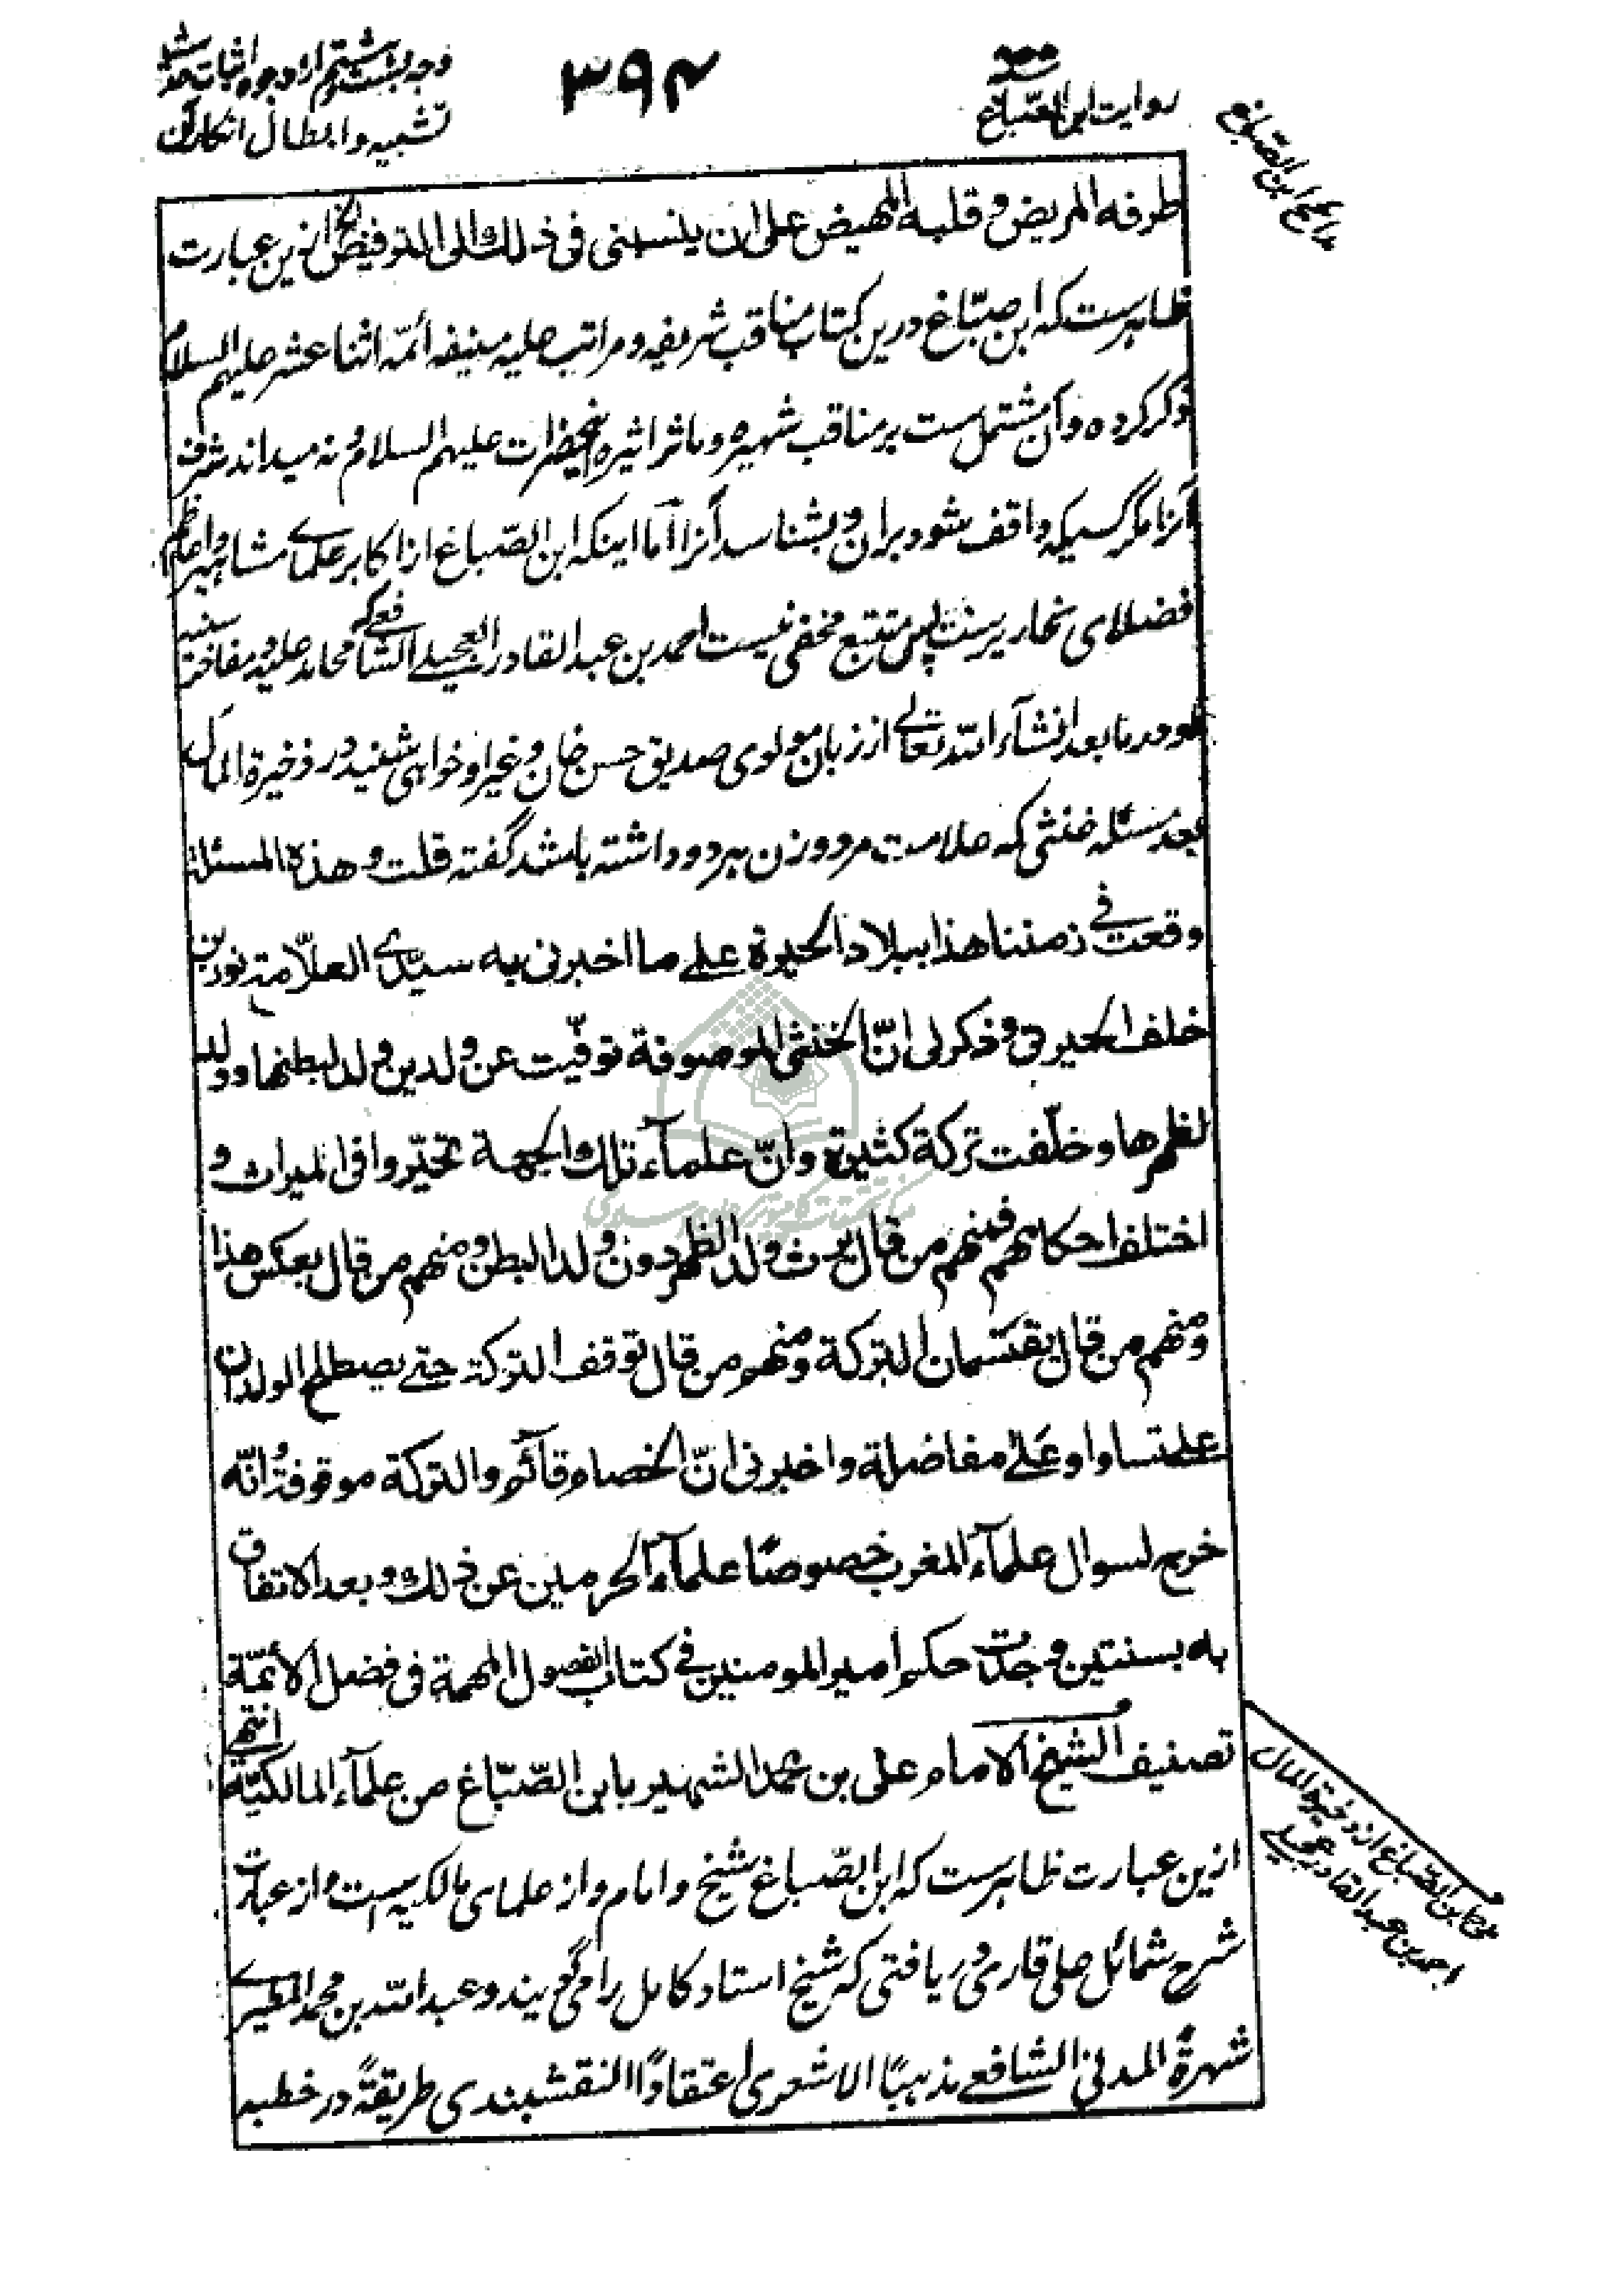 روایت ابن الصّبّاغ
۳۹۴
وجه بست و هشتم از وجوه اثبات حدیث
تشبیه و ابطال انکار آن
مدایح ابن الصّبّاغ
طرفه المریض و قلبه المهیض علی ان ینسبنی فی ذلك الی التوفیض الخ ازین عبارت
ظاهرست که ابن صبّاغ درین کتاب مناقب شریفه و مراتب علیه منیفه أئمّه اثنا عشر علیهم السلام
ذکر کرده و آن مشتمل ست بر مناقب شهیره و مآثر اثیره آنحضرات علیهم السلام و نه میداند شرف
آنرا مگر کسیکه واقف شود بران و بشناسد آنرا اما اینکه ابن الصّباغ از اکابر علمای مشاهیر و اعاظم
فضلای نحاریر سنت پس بر متتبع مخفی نیست احمد بن عبد القادر العجیلی الشافعی که محامد علیه و مفاخر سنیه
او در ما بعد انشاء الله تعالی از زبان مولوی صدیق حسن خان و غیر او خواهی شنید در ذخیرة المآل
بعد مسئله خنثی که علامت مرد و زن هر دو داشته باشد گفته قلت و هذه المسئلة
وقعت فی زمننا هذا ببلاد الحیرة علی ما اخبرنی به سیّدی العلّامة نور بن
خلف الحیرتی و ذکر لی انّ الخنثی الموصوفة توفّیت عن ولدین ولد لبطنها و ولد
لظهرها و خلّفت ترکة کثیرة و انّ علمآء تلك الجهة تحیّروا فی المیراث و
اختلف احکامهم فمنهم من قال یرث ولد الظهر دون ولد البطن و منهم من قال بعکس هذا
و منهم من قال یقتسمان الترکة و منهم من قال توقف الترکة حتی یصطلح الولدان
علی تساو او علی مفاضلة و اخبرنی انّ الخصام قآئم و الترکة موقوفة و انّه
خرج لسوال علمآء المغرب خصوصًا علمآء الحرمین عن ذلك و بعد الاتفاق
به بسنتین وجدت حکم امیر المومنین فی کتاب الفصول المهمة فی فضل الأئمّة
تصنیف الشیخ الامام علی بن محمد الشهیر بابن الصّبّاغ من علمآء المالکیّة انتهی
ازین عبارت ظاهرست که ابن الصّباغ شیخ و امام و از علمای مالکیه است و از عبارت
شرح شمائل علی قاری دریافتی که شیخ استاد کامل را می گویند و عبد الله بن محمد المطیری
شهرةً المدنی الشافعی مذهبًا الاشعری اعتقادًا النقشبندی طریقةً در خطبه
مدح ابن الصّبّاغ از ذخیرة المآل
احمد بن عبد القادر عجیلی